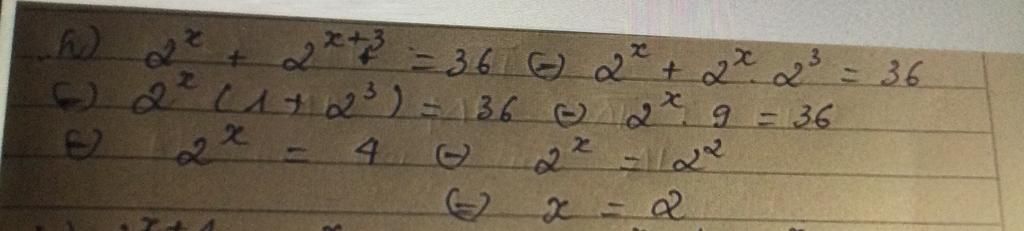 h) 2^x + 2^{x+3} = 36 ⇔ 2^x + 2^x . 2^3 = 36
⇔ 2^x (1 + 2^3) = 36 ⇔ 2^x . 9 = 36
⇔ 2^x = 4 ⇔ 2^x = 2^2
⇔ x = 2